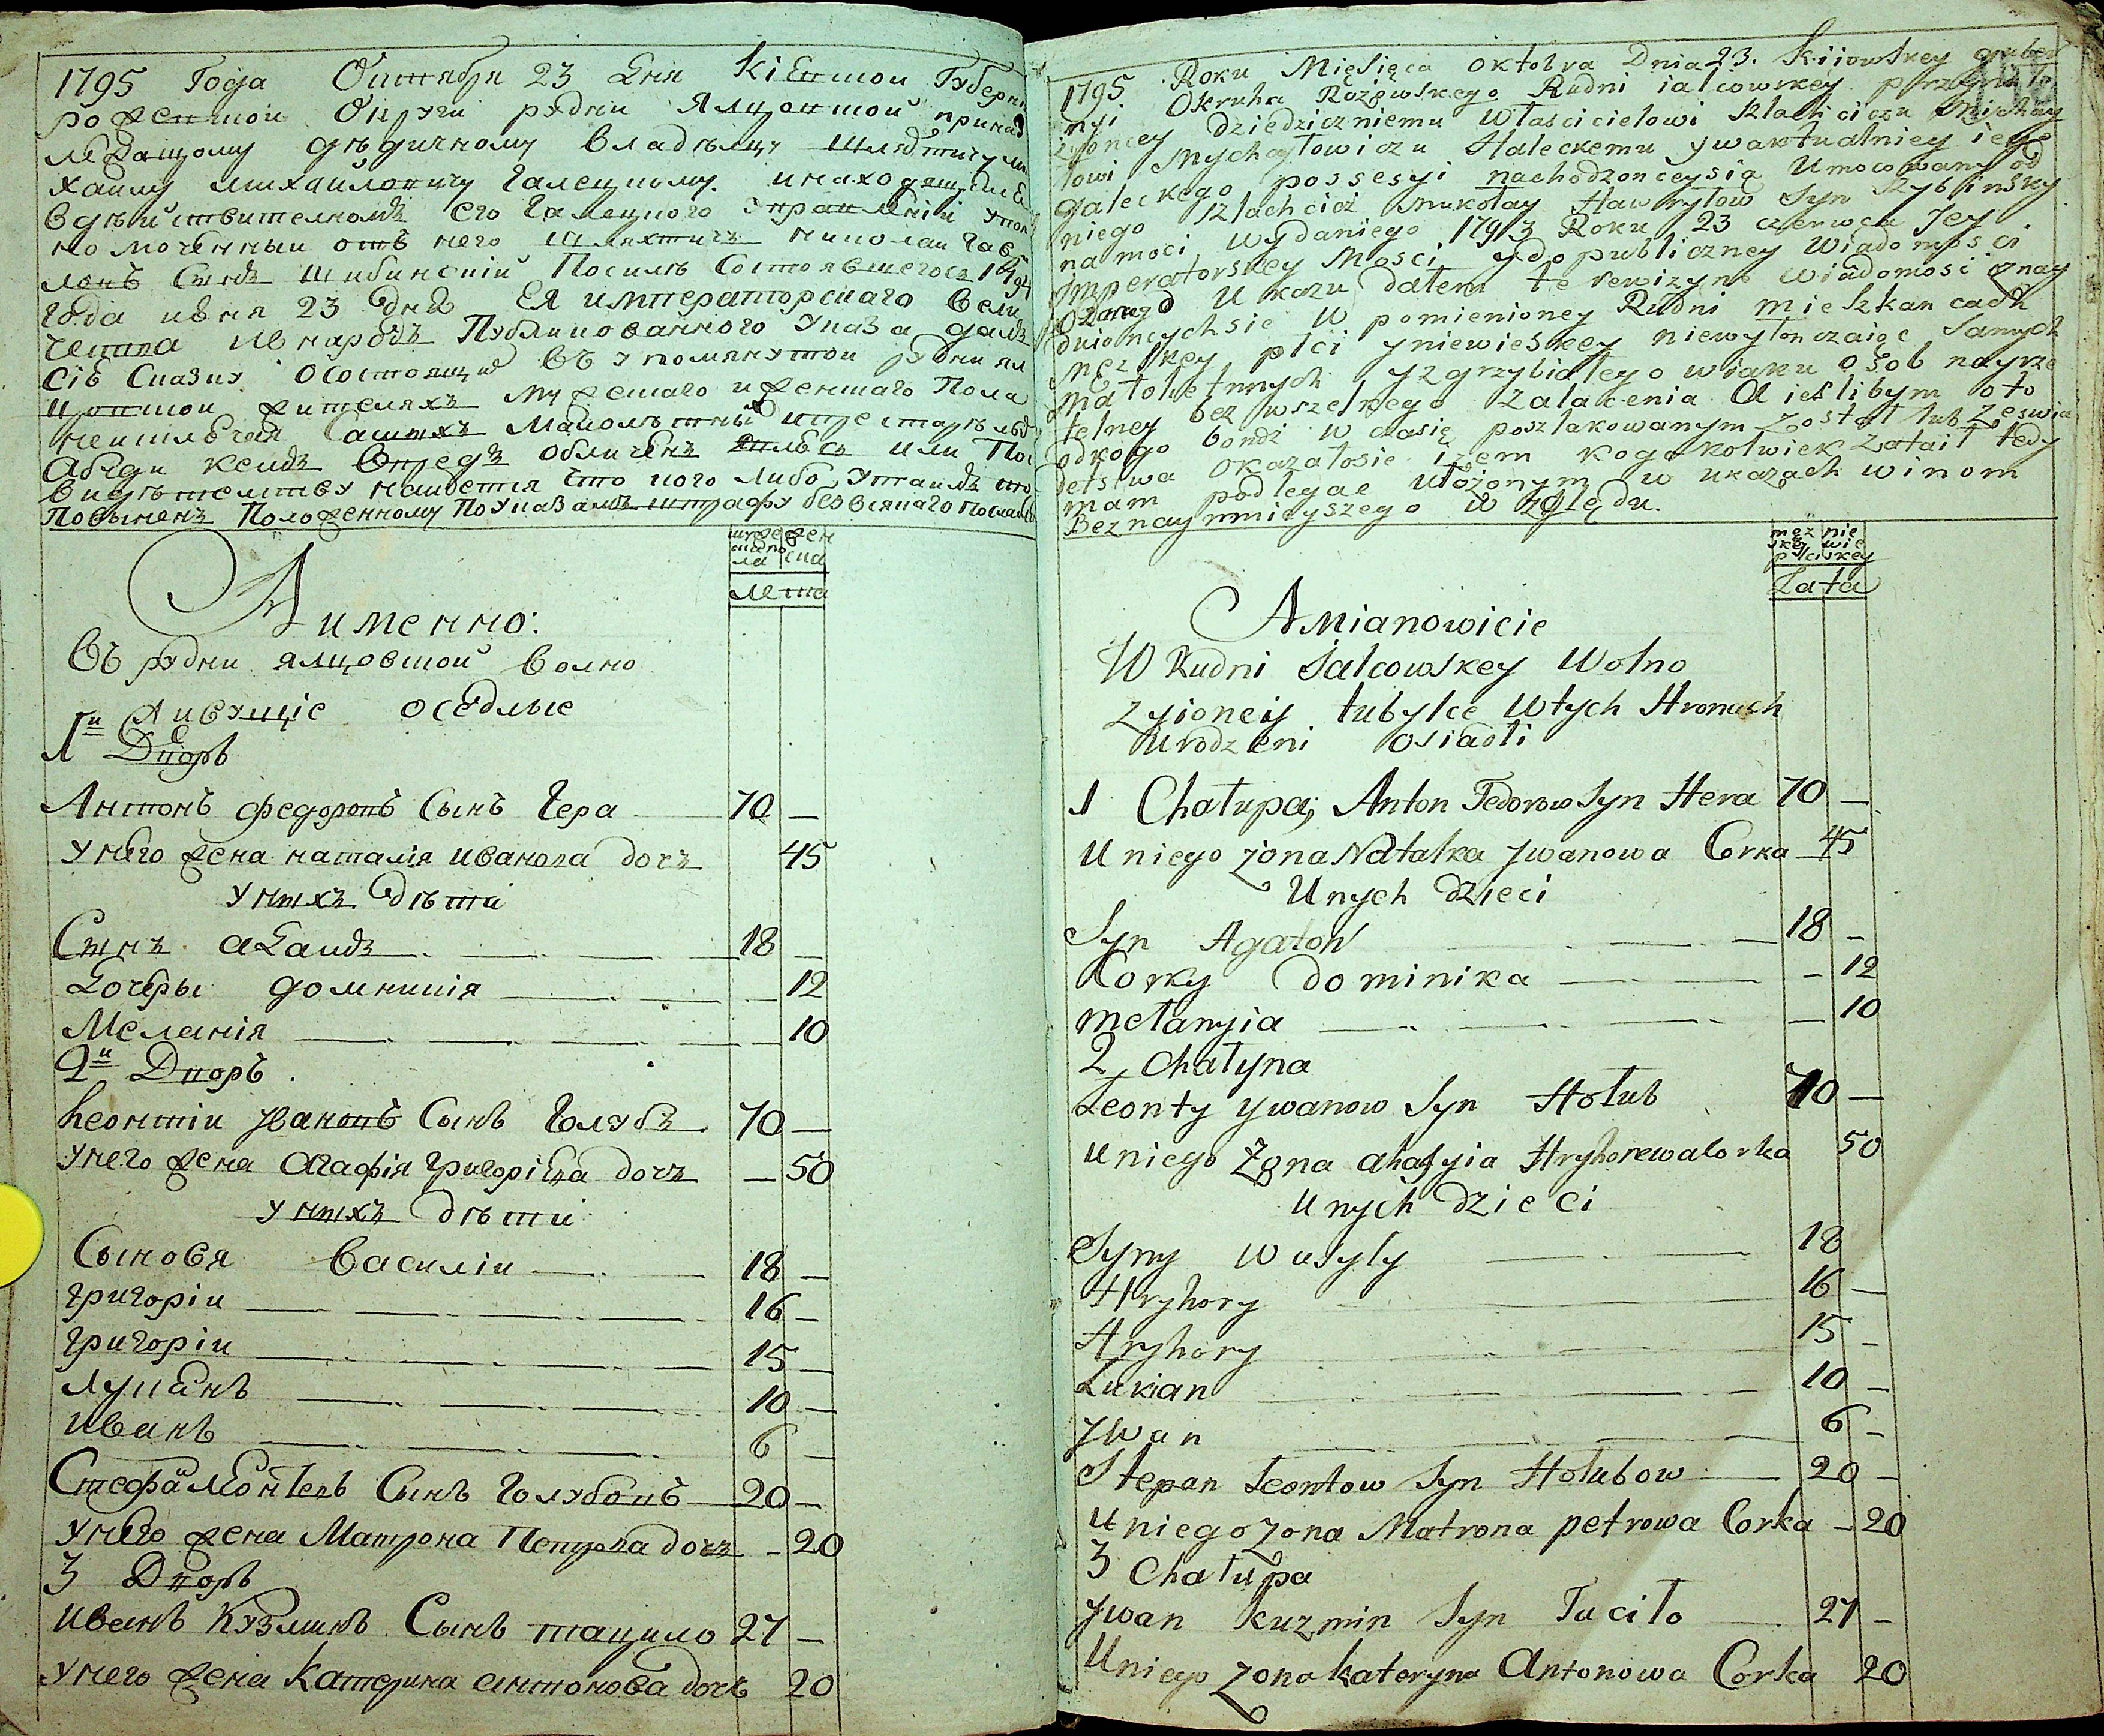 1795 Года Октября 23 Дня Кіевской Губерн
рожевской Округи рудни Ялцовской принад
лежащому дѣдичному владѣлцу шляхтичу ми
хайлу михайловичу Галецкому. инаходящейся
вдѣйствителномъ его Галецкого Управленіи упол
номоченный отъ него шляхтичъ николай гаври
ловъ Сынъ шибинскій Посилѣ Состоявшегося 1794
года июня 23 дня ЕЯ императорскаго вели
чества ивнародъ Публикованного Указа далъ
сію Сказку осостоящихъ въ упомянутой рудни ял
цовской жителяхъ мужескаго иженскаго Пола
неисключая Самыхъ малолѣтныхъ ипрестарѣлыхъ
Абуди кемъ впредъ обличенъ явлюсь или По
видѣтелству найдется что кого либо Утаилъ то
Повыненъ Положенному ПоУказамъ штрафу безвсякаго послабл
муже
ска по
ла
жен
ска
лета
А именно:
въ рудни ялцовской волно
живущіе оседлые
1й Дворъ
Антонъ федоровъ Сынъ Гера 70 —
унего жена наталія иванова дочъ 45
унихъ дѣти
Сынъ агаидъ 18 —
дочеры домникія — 12
Меланія — 10
2й Дворъ
Леонтіи ивановъ Сынъ Голубъ 70 —
унего жена агафія григоріева дочъ — 50
унихъ дѣти
Сыновя василіи 18 —
григоріи 16 —
григоріи 15 —
лукіанъ 10 —
иванъ 6 —
Стефанъ леонтевъ Сынъ голубовъ 20 —
унего жена Матрона Петрова дочъ - 20
3 Дворъ
иванъ кузминъ Сынъ тацило 27 —
унего жена катерина антонова дочъ 20
1795 Roku Miesięca oktobra Dnia 23. kiiowskey guber
nyi Okruha Rożewskego Rudni ialcowskey przyna
żoncey dziedziczniemu własicielowi Szlachciczu Michay
łowi Mychayłowiczu Haleckemu ywaktualniey iego
galeckego possesyi nachodzonceysia Umocowany od
niego szlachcicz mikołay Hawryłow Syn Szybinsky
na moci wydaniego 1793 Roku 23 czerwca Jey
imperatorskey Mosci ydopubliczney wiadomosci
Ukazu dałem te rewizyyne wiadomosć oznay
duioncychsie W pomienioney Rudni mieszkancach
męzskey płci yniewieskey niewyłonczaioc samych
małoletnych yzgrzybiałego wiaku osob nayrze
telney bez wszelkego zatacenia A ieslibym oto
odkogo bondz w czasię poszlakowanym został lub zeswia
detstwa okazałosie iżem kogokolwiek zataił tedy
mam podlegać ułożonym w ukazach winom
Beznaymnieyszego względu.
męz
skey
płci
nie
wie
skey
Lata
Amianowicie
W Rudni Jalcowskey Wolno
zyioncij tubylce wtych stronach
urodzeni osiadli
1 Chałupa; Anton Fedorow Syn Hera 70 —
U niego żona Natalka ywanowa Corka — 45
Unych dzieci
Syn Agaton 18 —
Corky dominika — 12
mełanyia — 10
2 chałyna
Leonty ywanow Syn Hołub 70 —
uniego żona ahafyia Hryhorewa Corka 50
unych dzieci
Syny wasyly 18
Hryhory 16 —
Hryhory 15 —
Łukian 10 —
ywan 6 —
Stepan Leontow Syn Hołubow 20 —
uniego zona Matrona petrowa Corka — 20
3 Chałupa
ywan kuzmin Syn Taciło 27 —
Uniego zona kateryna Antonowa Corka 20